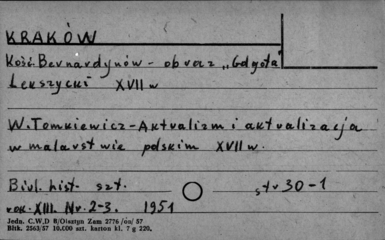 KRAKÓW
Kość. Bernardynów - obraz „Golgota"
Lekszycki XVII w
W. Tomkiewicz - Aktualizm i aktualizacja
w malarstwie polskim XVII w.
Biul. hist. szt. str 30-1
rok. XIII. Nr. 2-3. 1951
Jedn. C.W.D B/Olsztyn Zam 2776/on/ 57
Bltk. 2563/57 10.000 szt. karton kl. 7 g 220.